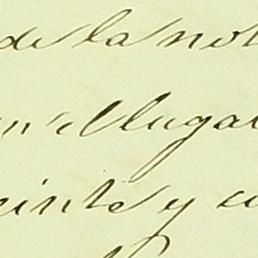 de la not
en el lugar
einte y cu